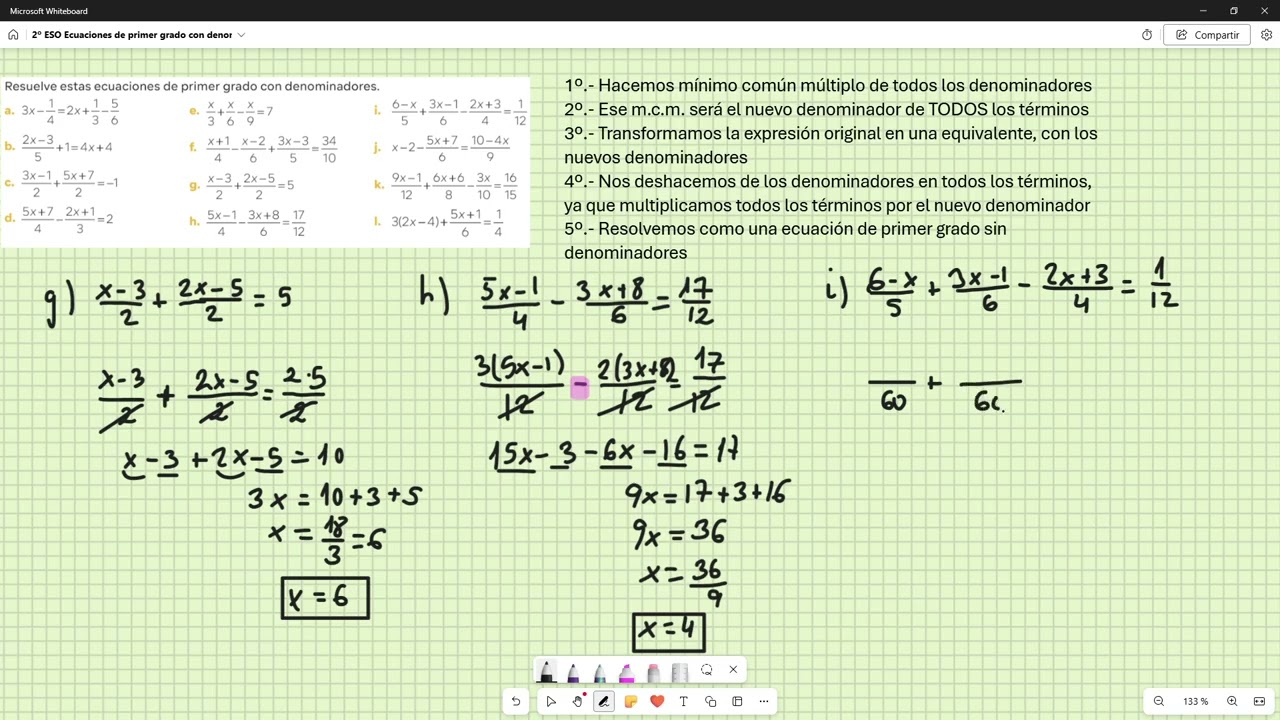 Microsoft Whiteboard
2º ESO Ecuaciones de primer grado con denor
Compartir
Resuelve estas ecuaciones de primer grado con denominadores.
a. 3x − 1/4 = 2x + 1/3 − 5/6
b. (2x−3)/5 + 1 = 4x + 4
c. (3x−1)/2 + (5x+7)/2 = −1
d. (5x+7)/4 − (2x+1)/3 = 2
e. x/3 + x/6 − x/9 = 7
f. (x+1)/4 − (x−2)/6 + (3x−3)/5 = 34/10
g. (x−3)/2 + (2x−5)/2 = 5
h. (5x−1)/4 − (3x+8)/6 = 17/12
i. (6−x)/5 + (3x−1)/6 − (2x+3)/4 = 1/12
j. x − 2 − (5x+7)/6 = (10−4x)/9
k. (9x−1)/12 + (6x+6)/8 − 3x/10 = 16/15
l. 3(2x−4) + (5x+1)/6 = 1/4
1º.- Hacemos mínimo común múltiplo de todos los denominadores
2º.- Ese m.c.m. será el nuevo denominador de TODOS los términos
3º.- Transformamos la expresión original en una equivalente, con los
nuevos denominadores
4º.- Nos deshacemos de los denominadores en todos los términos,
ya que multiplicamos todos los términos por el nuevo denominador
5º.- Resolvemos como una ecuación de primer grado sin
denominadores
g) (x−3)/2 + (2x−5)/2 = 5
(x−3)/2 + (2x−5)/2 = (2·5)/2
x − 3 + 2x − 5 = 10
3x = 10 + 3 + 5
x = 18/3 = 6
x = 6
h) (5x−1)/4 − (3x+8)/6 = 17/12
3(5x−1)/12 − 2(3x+8)/12 = 17/12
15x − 3 − 6x − 16 = 17
9x = 17 + 3 + 16
9x = 36
x = 36/9
x = 4
i) (6−x)/5 + (3x−1)/6 − (2x+3)/4 = 1/12
/60 + /6
133 %